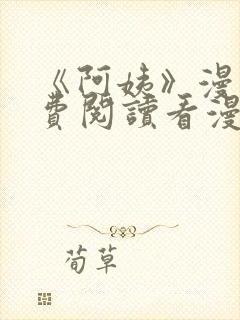 《阿姨》漫
費閱讀看漫
荀草